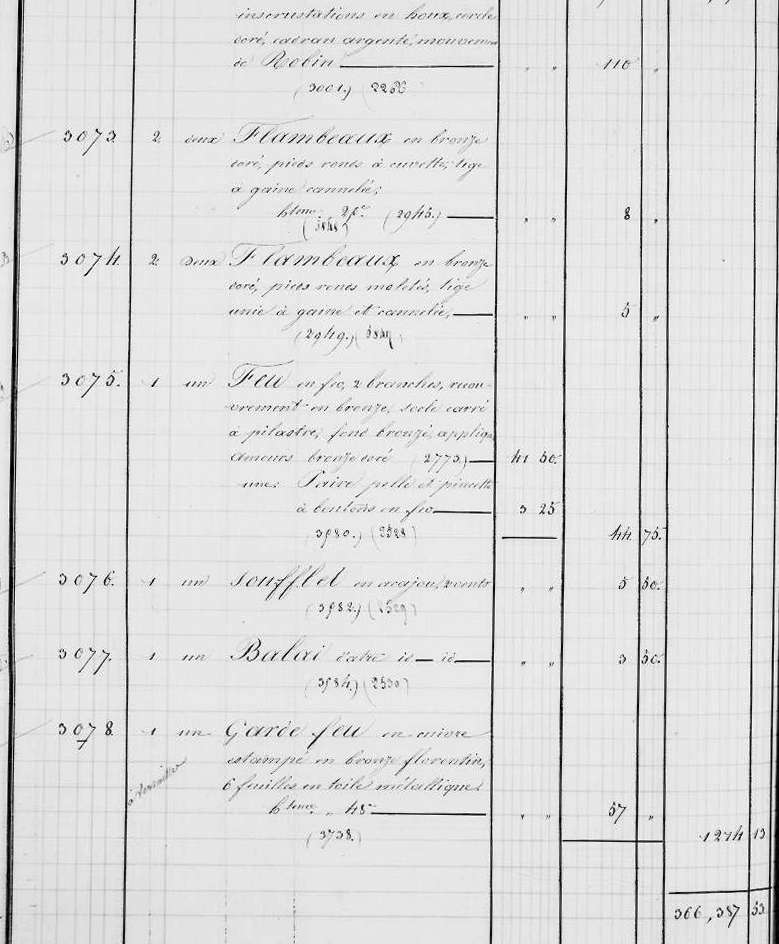 incrustations en houx, cercle
doré, cadran argenté, mouvement
de Robin " " 110 "
(3001.) (2256
3073. 2 deux Flambeaux en bronze
doré, pieds ronds à cuvette, tige
à gaine cannelée;
hteur. 28c. (2945.) " " 8 "
3074. 2 deux Flambeaux en bronze
doré, pieds ronds moletés, tige
unie à gaine et cannelée, " " 5 "
(2949.)
3075. 1 un Feu en fer, 2 branches, recou-
vrement en bronze, socle carré
à pilastre; fond bronzé, appliq.
amours bronze doré (2773.) 41 50.
une Paire pelle et pincette
à boutons en fer 3 25
(3980.) (2528) 44. 75.
3076. 1 un Soufflet en acajou, 2 vents " " 5 50.
(3982.) (2529)
3077. 1 un Balai d'atre id — id " " 3 50.
(3984.) (2530)
3078. 1 un Garde feu en cuivre
estampé en bronze florentin,
6 feuilles en toile métallique.
à Versailles
hteur. " 48c " " 57 "
(3738.)
1274 13
366,387 53